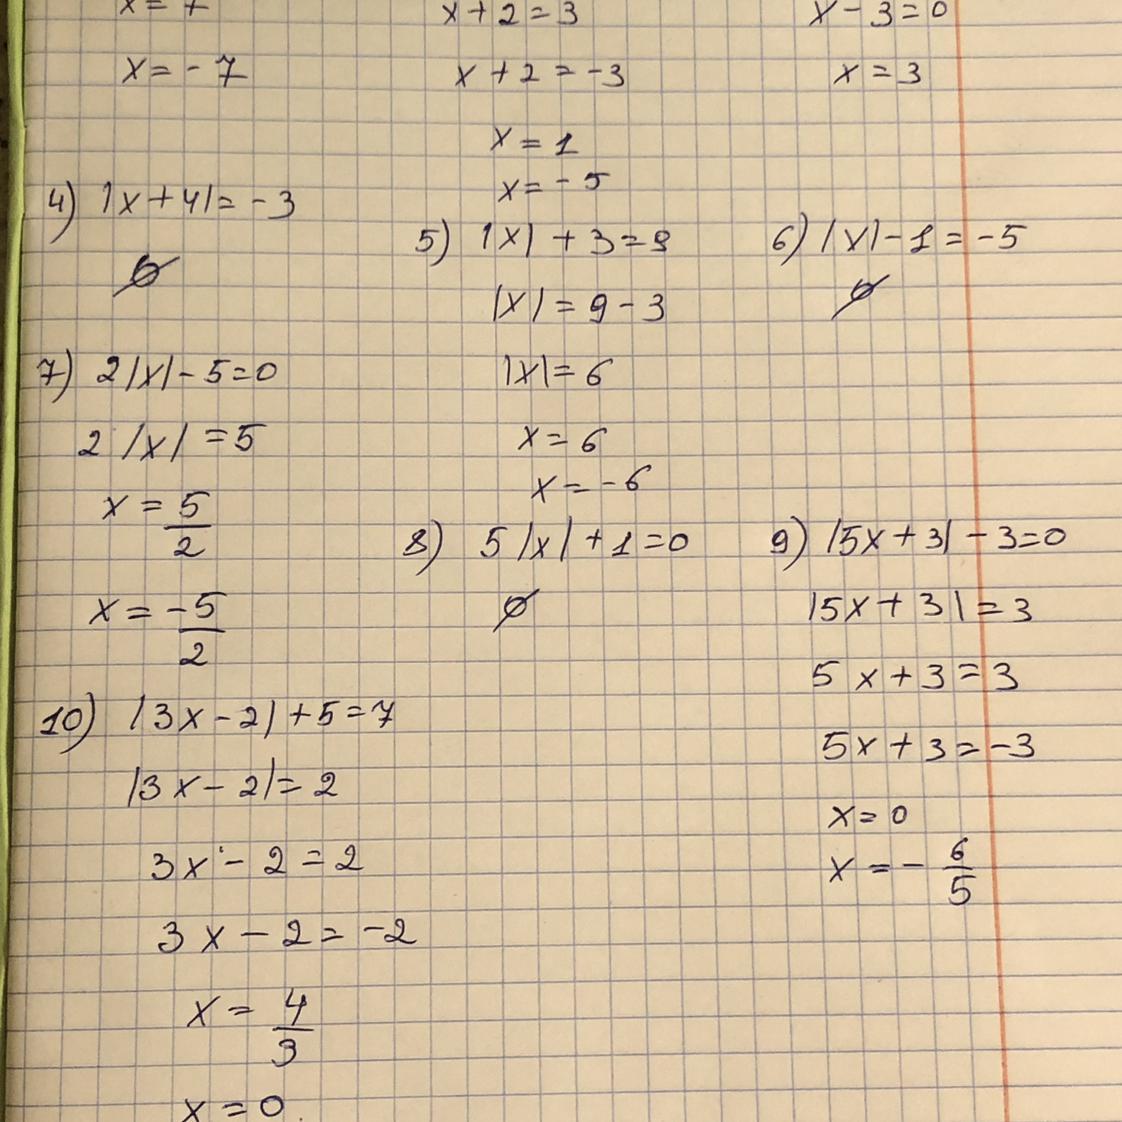 x = 7
x = -7
x + 2 = 3
x + 2 = -3
x = 1
x = -5
x - 3 = 0
x = 3
4) |x + 4| = -3
∅
5) |x| + 3 = 9
|x| = 9 - 3
|x| = 6
x = 6
x = -6
6) |x| - 1 = -5
∅
7) 2|x| - 5 = 0
2|x| = 5
x = 5/2
x = -5/2
8) 5|x| + 1 = 0
∅
9) |5x + 3| - 3 = 0
|5x + 3| = 3
5x + 3 = 3
5x + 3 = -3
x = 0
x = - 6/5
10) |3x - 2| + 5 = 7
|3x - 2| = 2
3x - 2 = 2
3x - 2 = -2
x = 4/3
x = 0